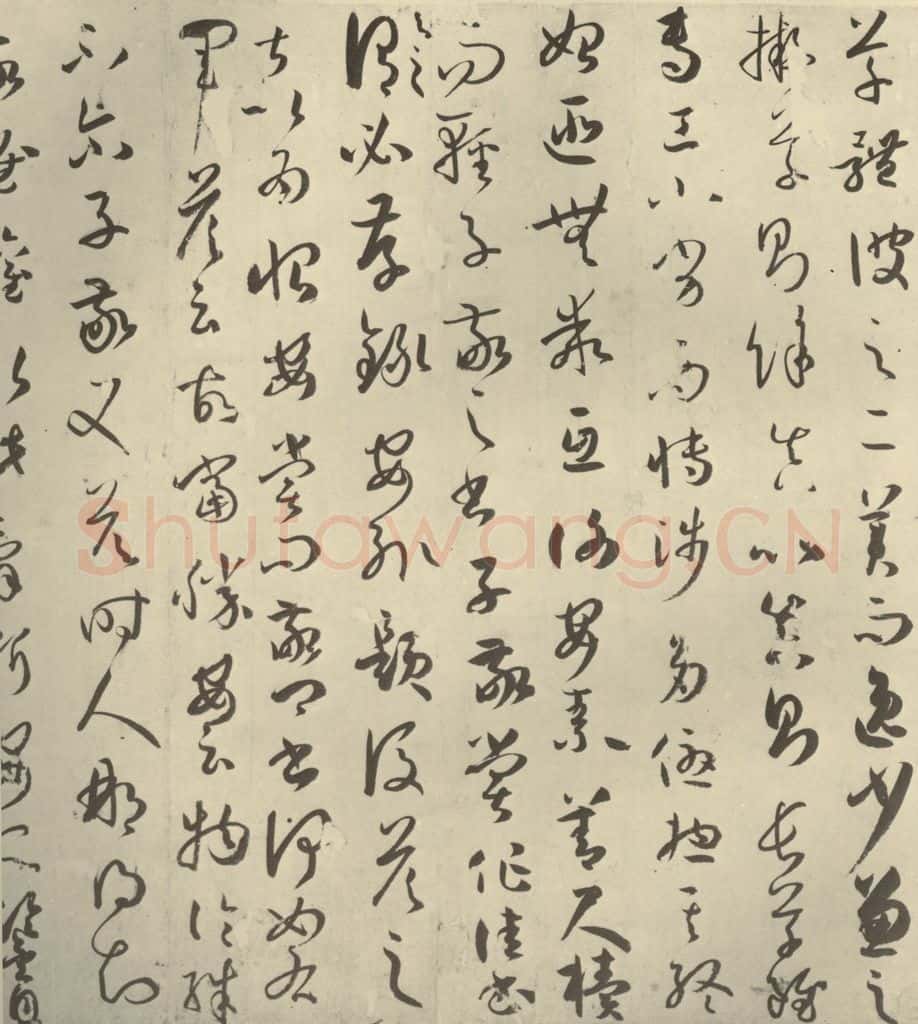 草體彼之二美而逸少兼之
擬草則餘真比真則長草雖
專工小劣而博涉多優揔其終
始匪無乖互謝安素善尺牘
而輕子敬之書子敬嘗作佳書
與之謂必存錄安輒題後答之
甚以為恨安嘗問敬卿書何如右
軍答云故當勝安云物論殊
不尒子敬又答時人那得知
Shufawang.CN